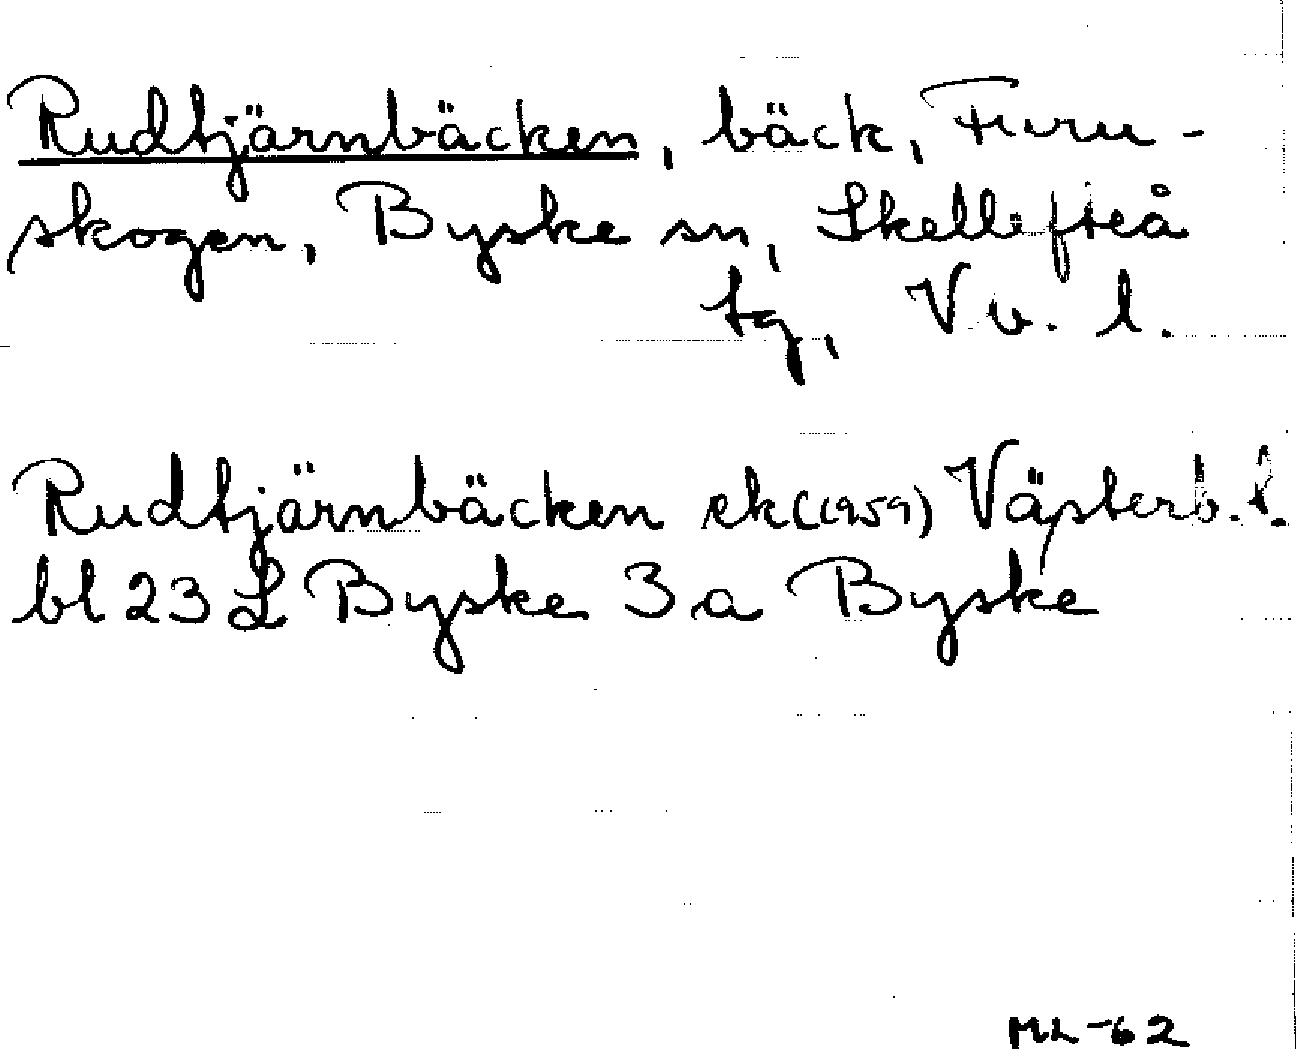 Rudtjärnbäcken, bäck, Furu-
skogen, Byske sn, Skellefteå
tg, Vb. l.
Rudtjärnbäcken ek(1959) Västerb. l.
bl 23 L Byske 3 a Byske
ML-62